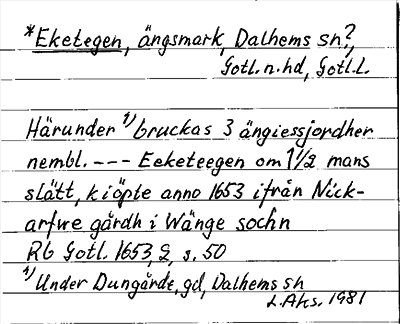 *Eketegen, ängsmark, Dalhems sn?,
Gotl. n. hd, Gotl. L.
Härunder 1) bruckas 3 ängiessjordher
nembl. --- Eeketeegen om 1 1/2 mans
slätt, kiöpte anno 1653 ifrån Nick-
arfwe gårdh i Wänge sochn
Rb Gotl. 1653, 2, s. 50
1) Under Dungårde, gd, Dalhems sn
L. Aks. 1981